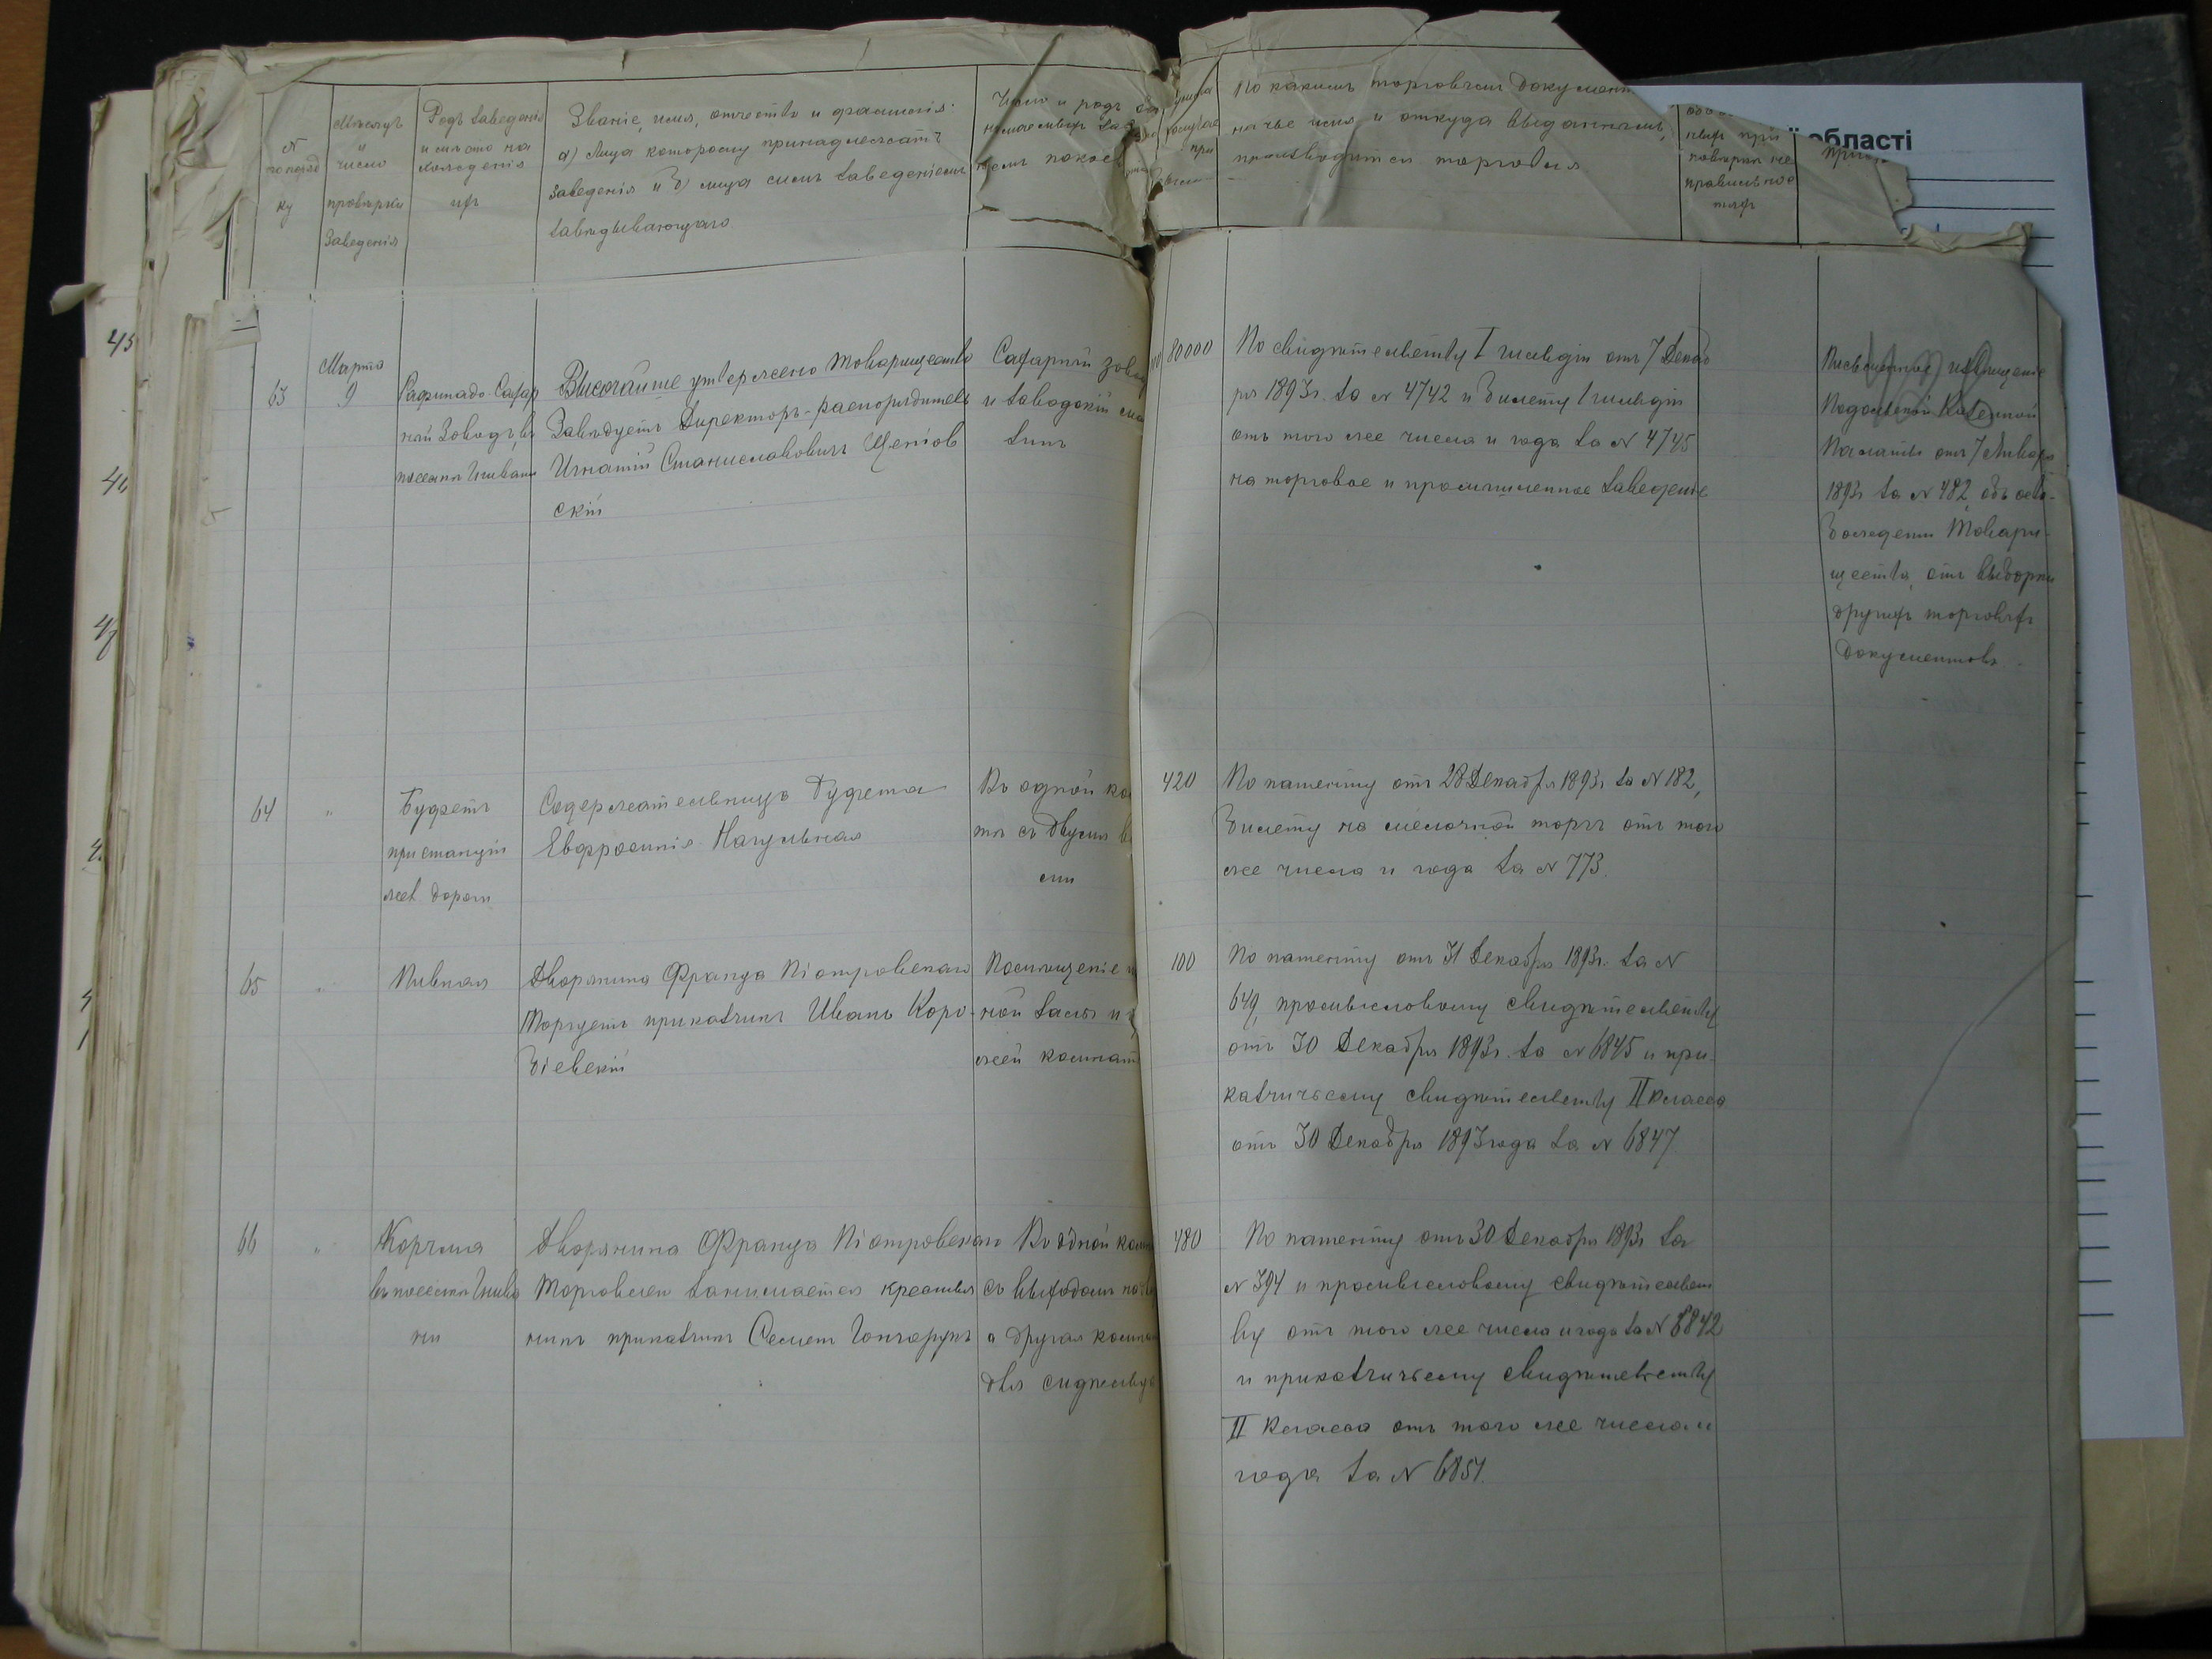 №
по поряд
ку
Мѣсяцъ
и
число
провѣрки
Заведенія
Родъ заведенія
и мѣсто на
хожденія
ихъ
Званіе, имя, отчество и фамилія:
а) Лица которому принадлежатъ
заведенія и б) лица симъ заведеніемъ
завѣдывающаго
Число и родъ
По какимъ торговымъ документ
на чье имя и откуда выданнымъ,
производится торговля
при
повѣркѣ не
правильнос
тяхъ
області
45
63
Марта
9
Рафинадо-Сахар
ный Заводъ, въ
Высочайше утвержено Товарищество
Завѣдуетъ Директоръ-распорядитель
Игнатій Станиславовичъ Щеніов
скій
Сахарный завод
и заводскій ма
зинъ
80000
По свидѣтельству I гильдіи отъ 7 Декаб
ря 1893г. за № 4742 и билету 1 гильдіи
отъ того же числа и года за № 4745
на торговое и промышленное заведеніе
Письменное извѣщеніе
Подольской Казенной
Палаты отъ 7 Января
1893г за № 482, объ осво-
божденіи Товари-
щества отъ выборки
другихъ торговыхъ
документовъ.
64
"
Буфетъ
при станціи
жел. дороги
Содержательницъ буфета
Евфросинія Нагульная
Въ одной ко
тѣ съ двумя
ми
420
По патенту отъ 28 Декабря 1893г за № 182,
билету на мелочной торгъ отъ того
же числа и года за № 773.
65
"
Пивная
Дворянина Франца Піотровскаго
Торгуетъ прикащикъ Иванъ Коро-
біевскій
Помѣщеніе
ной залы и
жей комнат
100
По патенту отъ 31 Декабря 1893г. за №
649, промысловому свидѣтельству
отъ 30 Декабря 1893г. за № 6845 и при-
казчичьему свидѣтельству II класса
отъ 30 Декабря 1893 года за № 6847
66
"
Корчма
въ посел. Гнива
ни
Дворянина Франца Піотровскаго
Торговлей занимается крестья
нинъ приказчикъ Семенъ Гончарукъ
Въ одной комн
съ выходомъ на
а другая комна
для сидѣльца
480
По патенту отъ 30 Декабря 1893г за
№ 394 и промысловому свидѣтельст
ву отъ того же числа и года за № 6842
и приказчичьему свидѣтельству
II класса отъ того же числа и
года за № 6851.